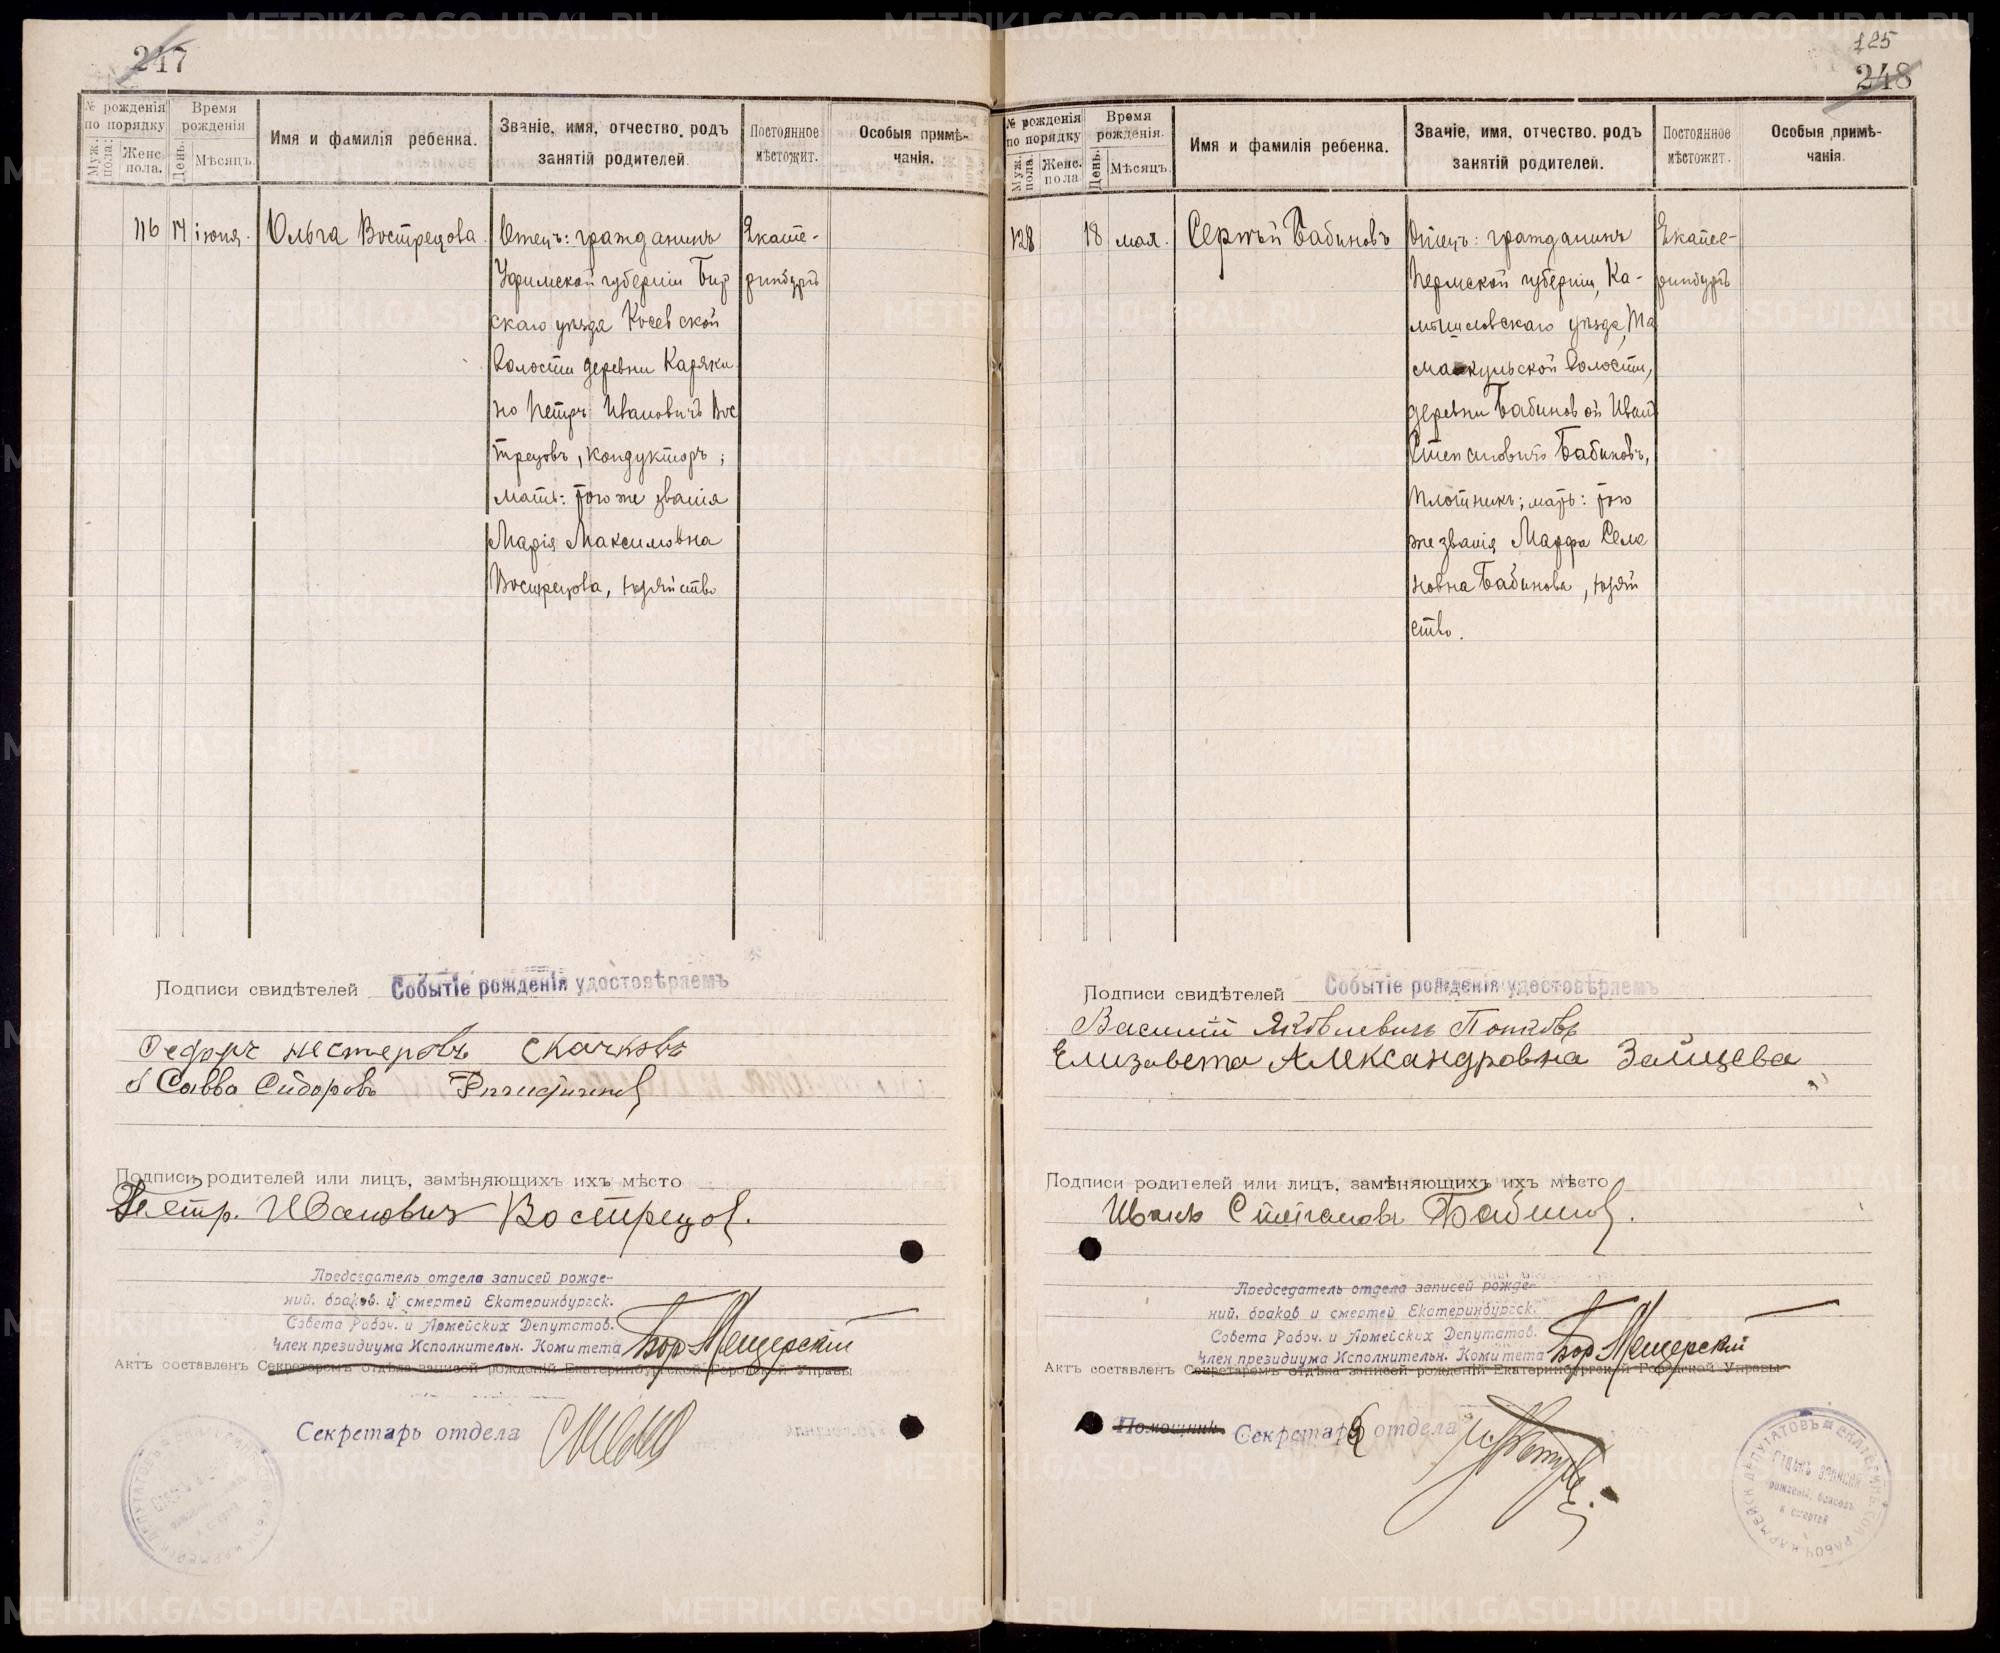 247
№ рожденія по порядку
Муж. пола.
Женс. пола.
Время рожденія
День.
Мѣсяцъ.
Имя и фамилія ребенка.
Званіе, имя, отчество, родъ занятій родителей.
Постоянное мѣстожит.
Особыя примѣчанія.
116
14
іюня.
Ольга Вострецова.
Отецъ: гражданинъ
Уфимской губерніи Бир
скаго уѣзда Косевской
волости деревни Каряки
но Петръ Ивановичъ Вос
трецовъ, кондукторъ;
мать: того же званія
Марія Максимовна
Вострецова, хозяйство
Екате-
ринбургъ
Подписи свидѣтелей
Событіе рожденія удостовѣряемъ
Федоръ Нестеровъ Скачковъ
Савва Сидоровъ
Подписи родителей или лицъ, замѣняющихъ ихъ мѣсто
Петр. Ивановичъ Вострецов.
Председатель отдела записей рожде-
ний, браков и смертей Екатеринбургск.
Совета Рабоч. и Армейских Депутатов.
Член президиума Исполнительн. Комитета Бор Мещерскій
Актъ составленъ Секретаремъ отдѣла записей рожденій Екатеринбургской Городской Управы
Секретарь отдела
125
248
№ рожденія по порядку
Муж. пола.
Женс. пола
Время рожденія.
День.
Мѣсяцъ.
Имя и фамилія ребенка.
Званіе, имя, отчество, родъ занятій родителей.
Постоянное мѣстожит.
Особыя примѣчанія.
128
18
мая.
Сергѣй Бабиновъ
Отецъ: гражданинъ
Пермской губерніи, Ка-
мышловскаго уѣзда, Та
макульской волости,
деревни Бабиновой Иванъ
Степановичъ Бабиновъ,
плотникъ; мать: того
же званія Марфа Семе
новна Бабинова, хозяй
ство.
Екате-
ринбургъ
Подписи свидѣтелей
Событіе рожденія удостовѣряемъ
Василий Яковлевичъ Попковъ
Елизавета Александровна Зайцева
Подписи родителей или лицъ, замѣняющихъ ихъ мѣсто
Иванъ Степановъ Бабинов.
Председатель отдела записей рожде-
ний, браков и смертей Екатеринбургск.
Совета Рабоч. и Армейских Депутатов.
Член президиума Исполнительн. Комитета Бор Мещерскій
Актъ составленъ Секретаремъ отдѣла записей рожденій Екатеринбургской Городской Управы
Помощник Секретарь отдела
ОТДѢЛЪ ЗАПИСЕЙ
рожденій, браковъ
и смертей
METRIKI.GASO-URAL.RU